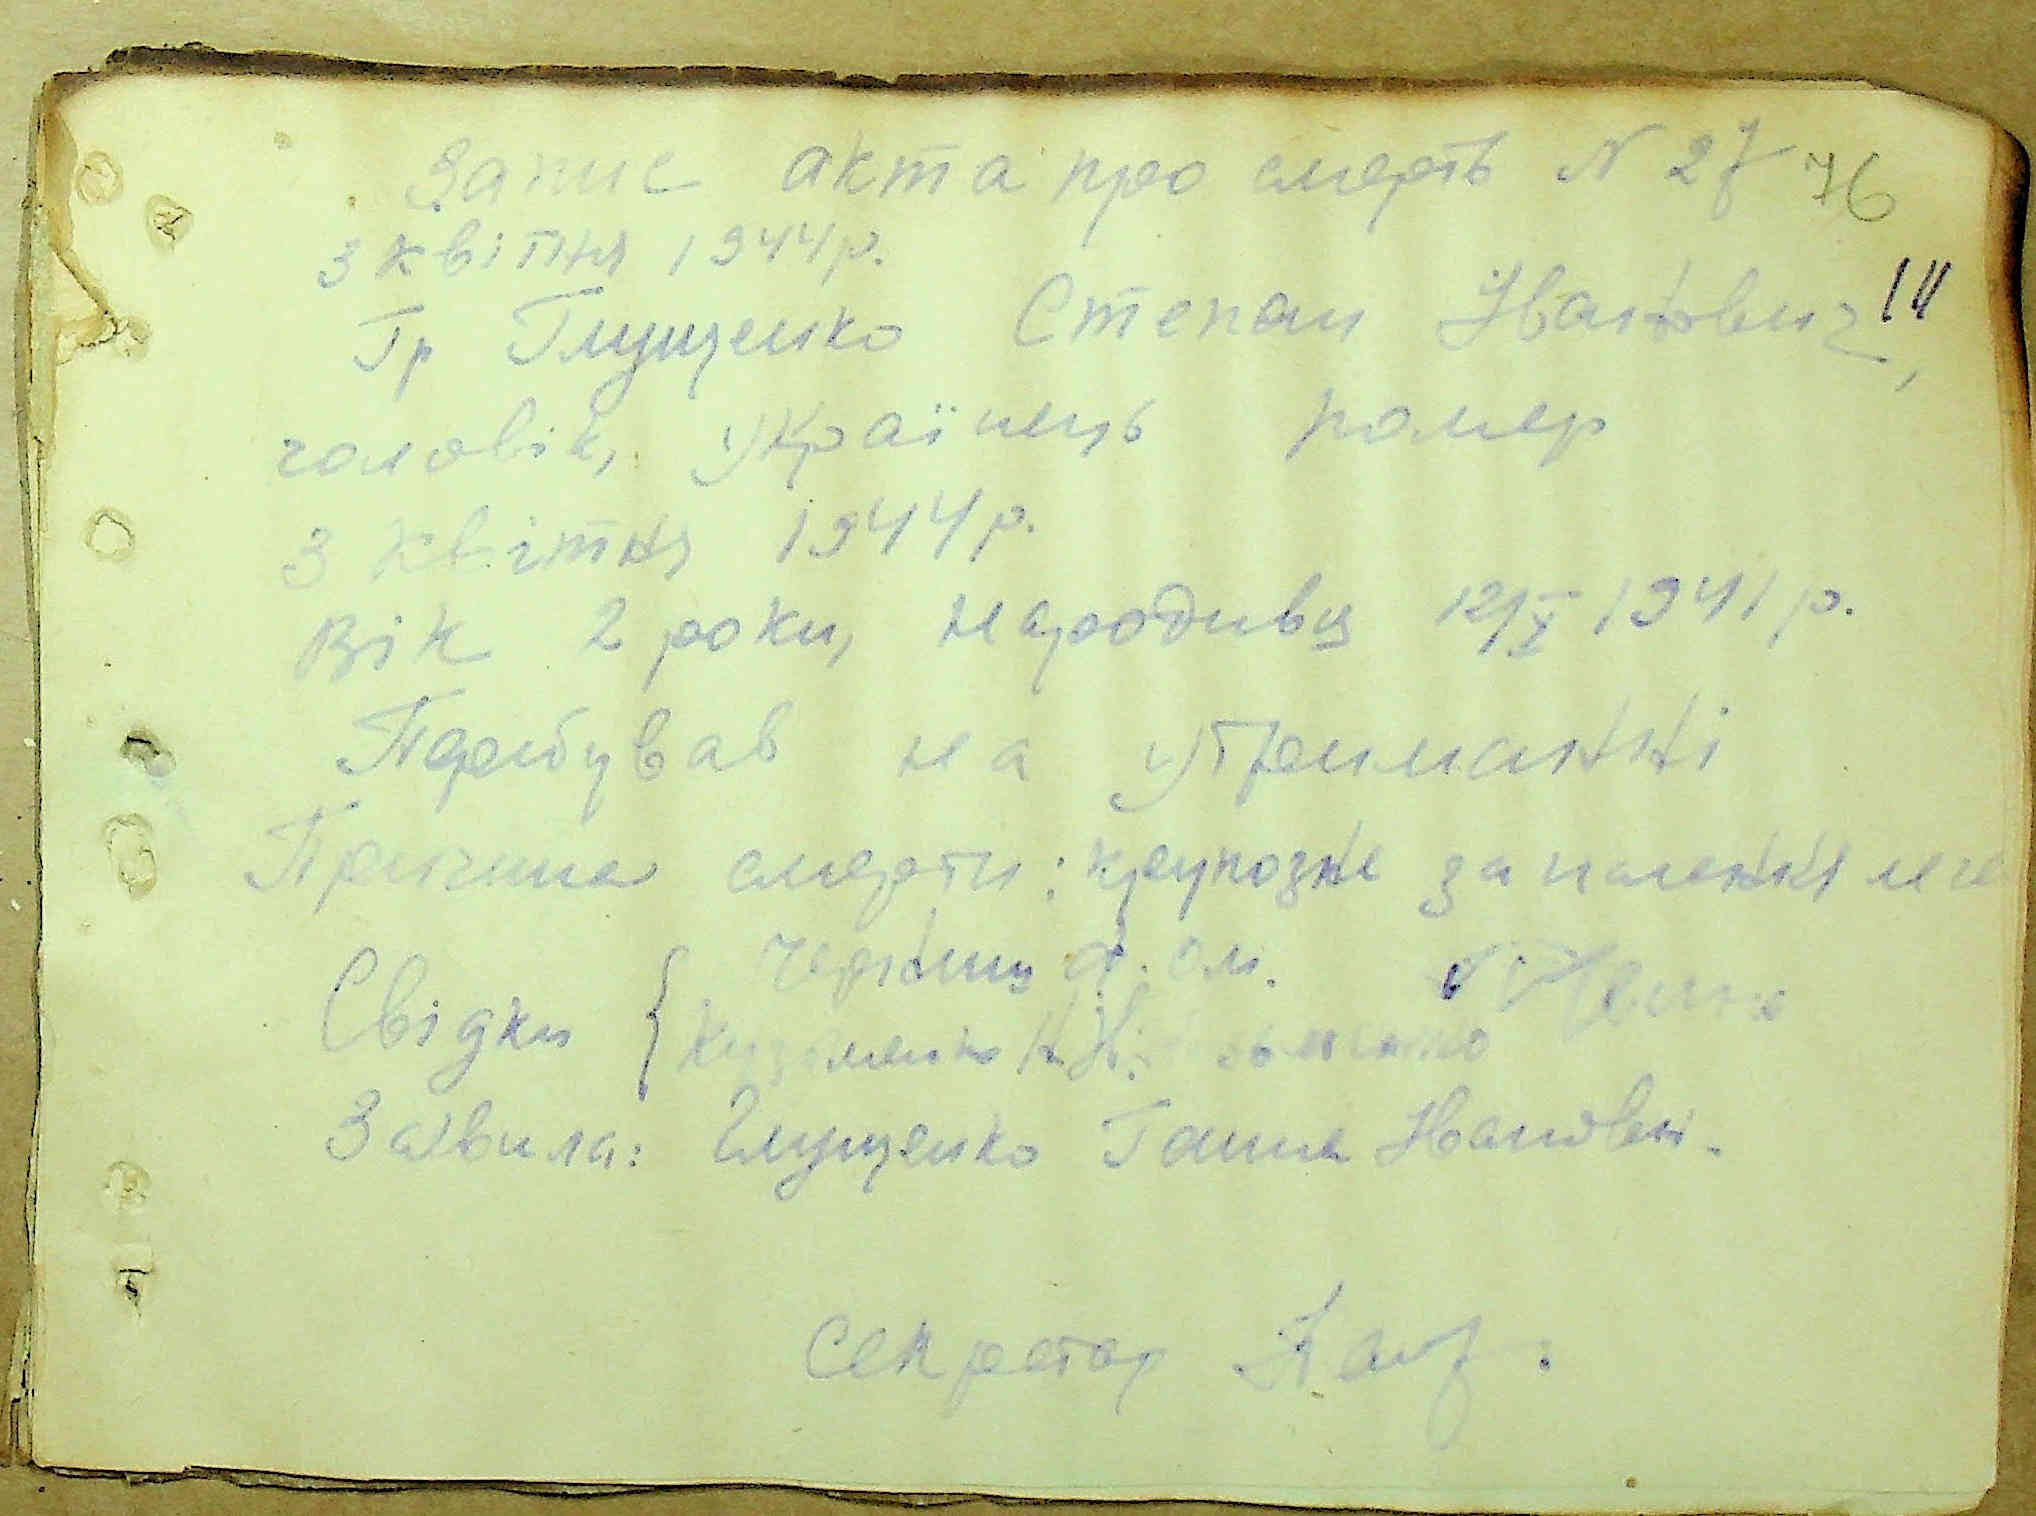 Запис акта про смерть N 27 76
3 квітня 1944 р.
14
Гр Глущенко Степан Іванович,
чоловік, Українець помер
3 квітня 1944 р.
Вік 2 роки, народивця 12/X 1941 р.
Перебував на Утриманні
Причина смерти: крупозне запалення леге
Свідки { Черниш
Кузьменко Н.
Заявила: Глущенко Ганна Івановн.
Секретар